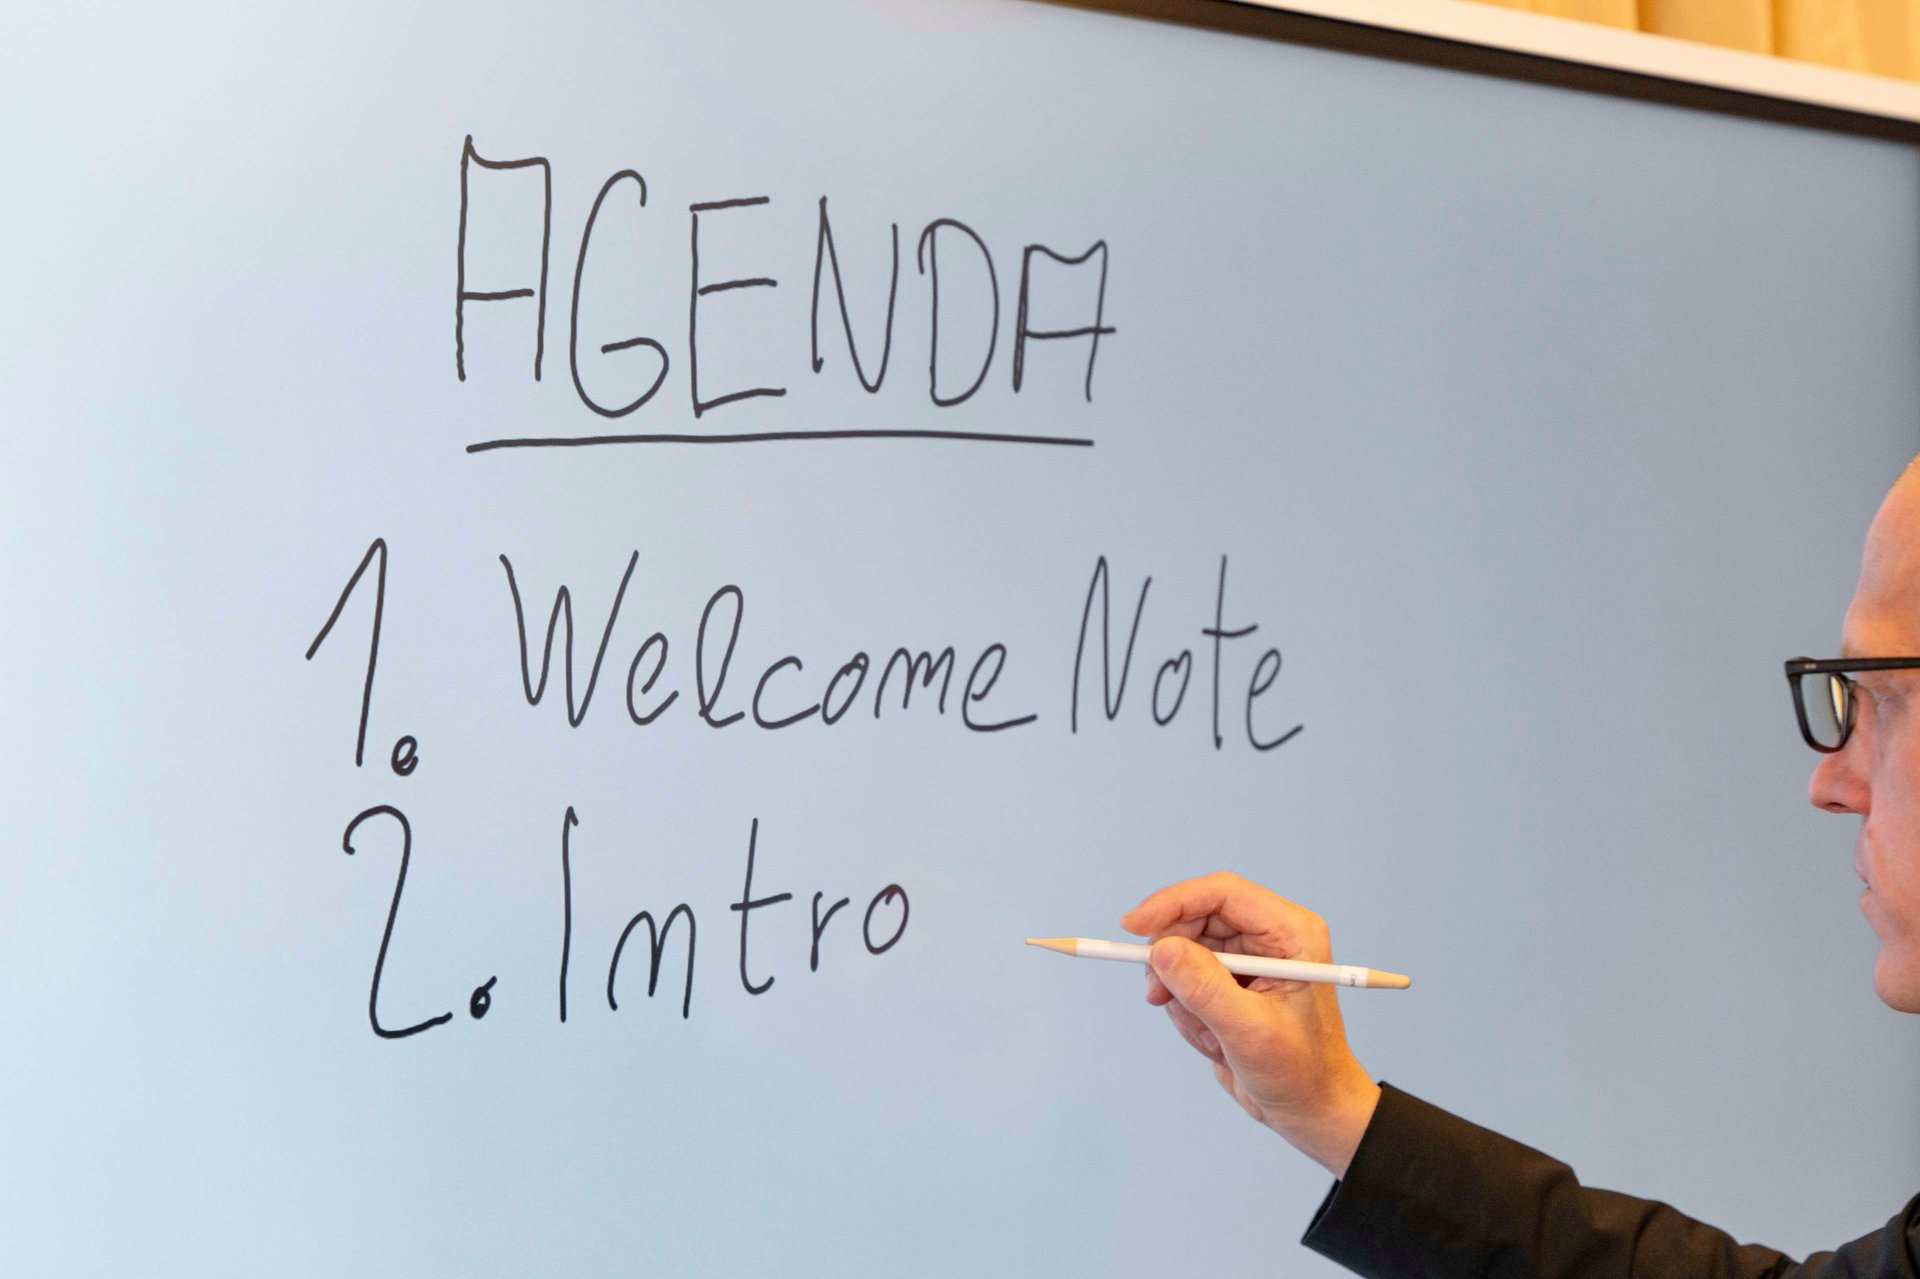 AGENDA
1. Welcome Note
2. Intro